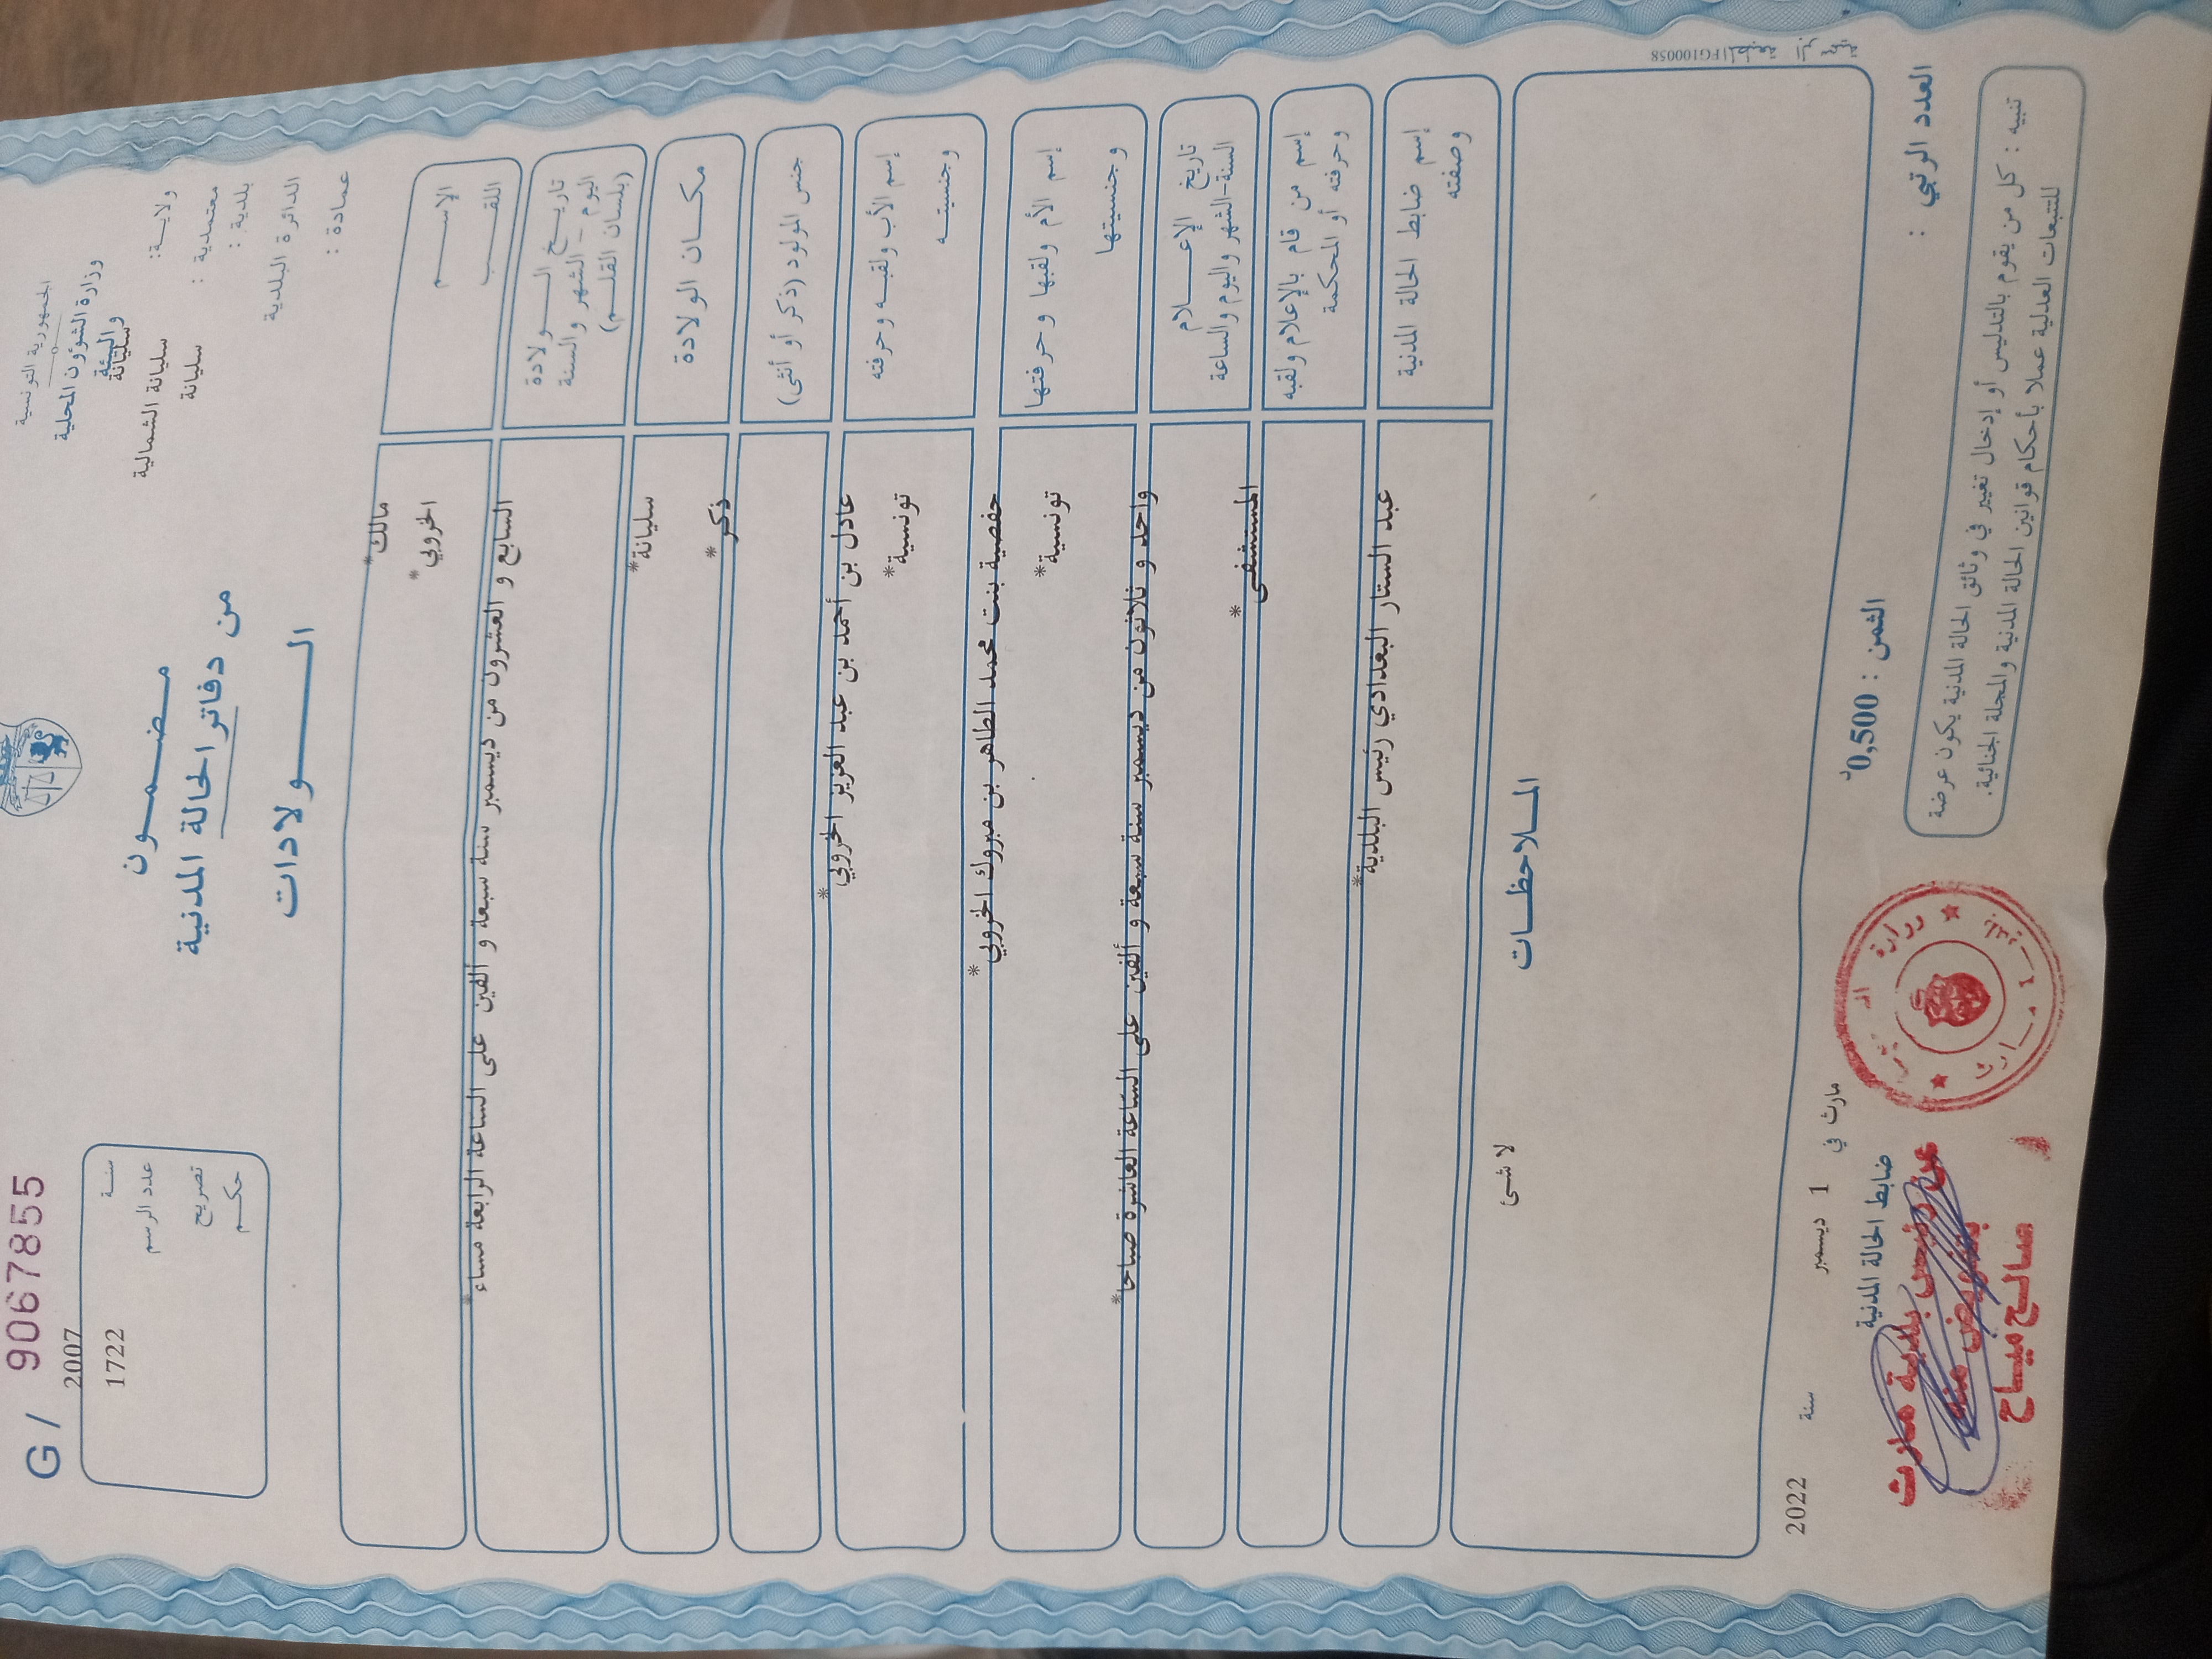 الجمهورية التونسية
وزارة الشؤون المحلية
والبيئة
ولايـــة: سليانة
معتمدية : سليانة الشمالية
بلدية : سليانة
الدائرة البلدية
عمادة :
G / 9067855
سنــة 2007
عدد الرسم 1722
تصريح
حكــم
مـــضـــمـــون
من دفاتر الحالة المدنية
الـــــولادات
الإســـــم مالك*
اللقـــب الخروبي*
تاريـــخ الـــــولادة
اليوم – الشهر والسنة
(بلسان القلـــم)
السابع و العشرون من ديسمبر سنة سبعة و ألفين على الساعة الرابعة مساء*
مكـــان الولادة سليانة*
جنس المولود (ذكر أو أنثى) ذكر*
إسم الأب ولقبـه وحرفته عادل بن أحمد بن عبد العزيز الخروبي*
وجنسيتـــه تونسية*
إسم الأم ولقبها وحرفتها حفصية بنت محمد الطاهر بن مبروك الخروبي*
وجنسيتها تونسية*
تاريخ الإعـــــلام
السنة-الشهر واليوم والساعة
واحد و ثلاثون من ديسمبر سنة سبعة و ألفين على الساعة العاشرة صباحا*
إسم من قام بالإعلام ولقبه
وحرفته أو المحكمة
المستشفى*
إسم ضابط الحالة المدنية
وصفته
عبد الستار البغدادي رئيس البلدية*
المـــلاحظـــات
لا شئ
مارث في 1 ديسمبر سنة 2022
ضابط الحالة المدنية
عن رئيس بلدية مارث
بتفويض منه
صالح مياح
وزارة
العدد الرتبي :
الثمن : 0,500د
تنبيه : كل من يقوم بالتدليس أو إدخال تغيير في وثائق الحالة المدنية يكون عرضة
للتتبعات العدلية عملا بأحكام قوانين الحالة المدنية والمجلة الجنائية.
FG100058